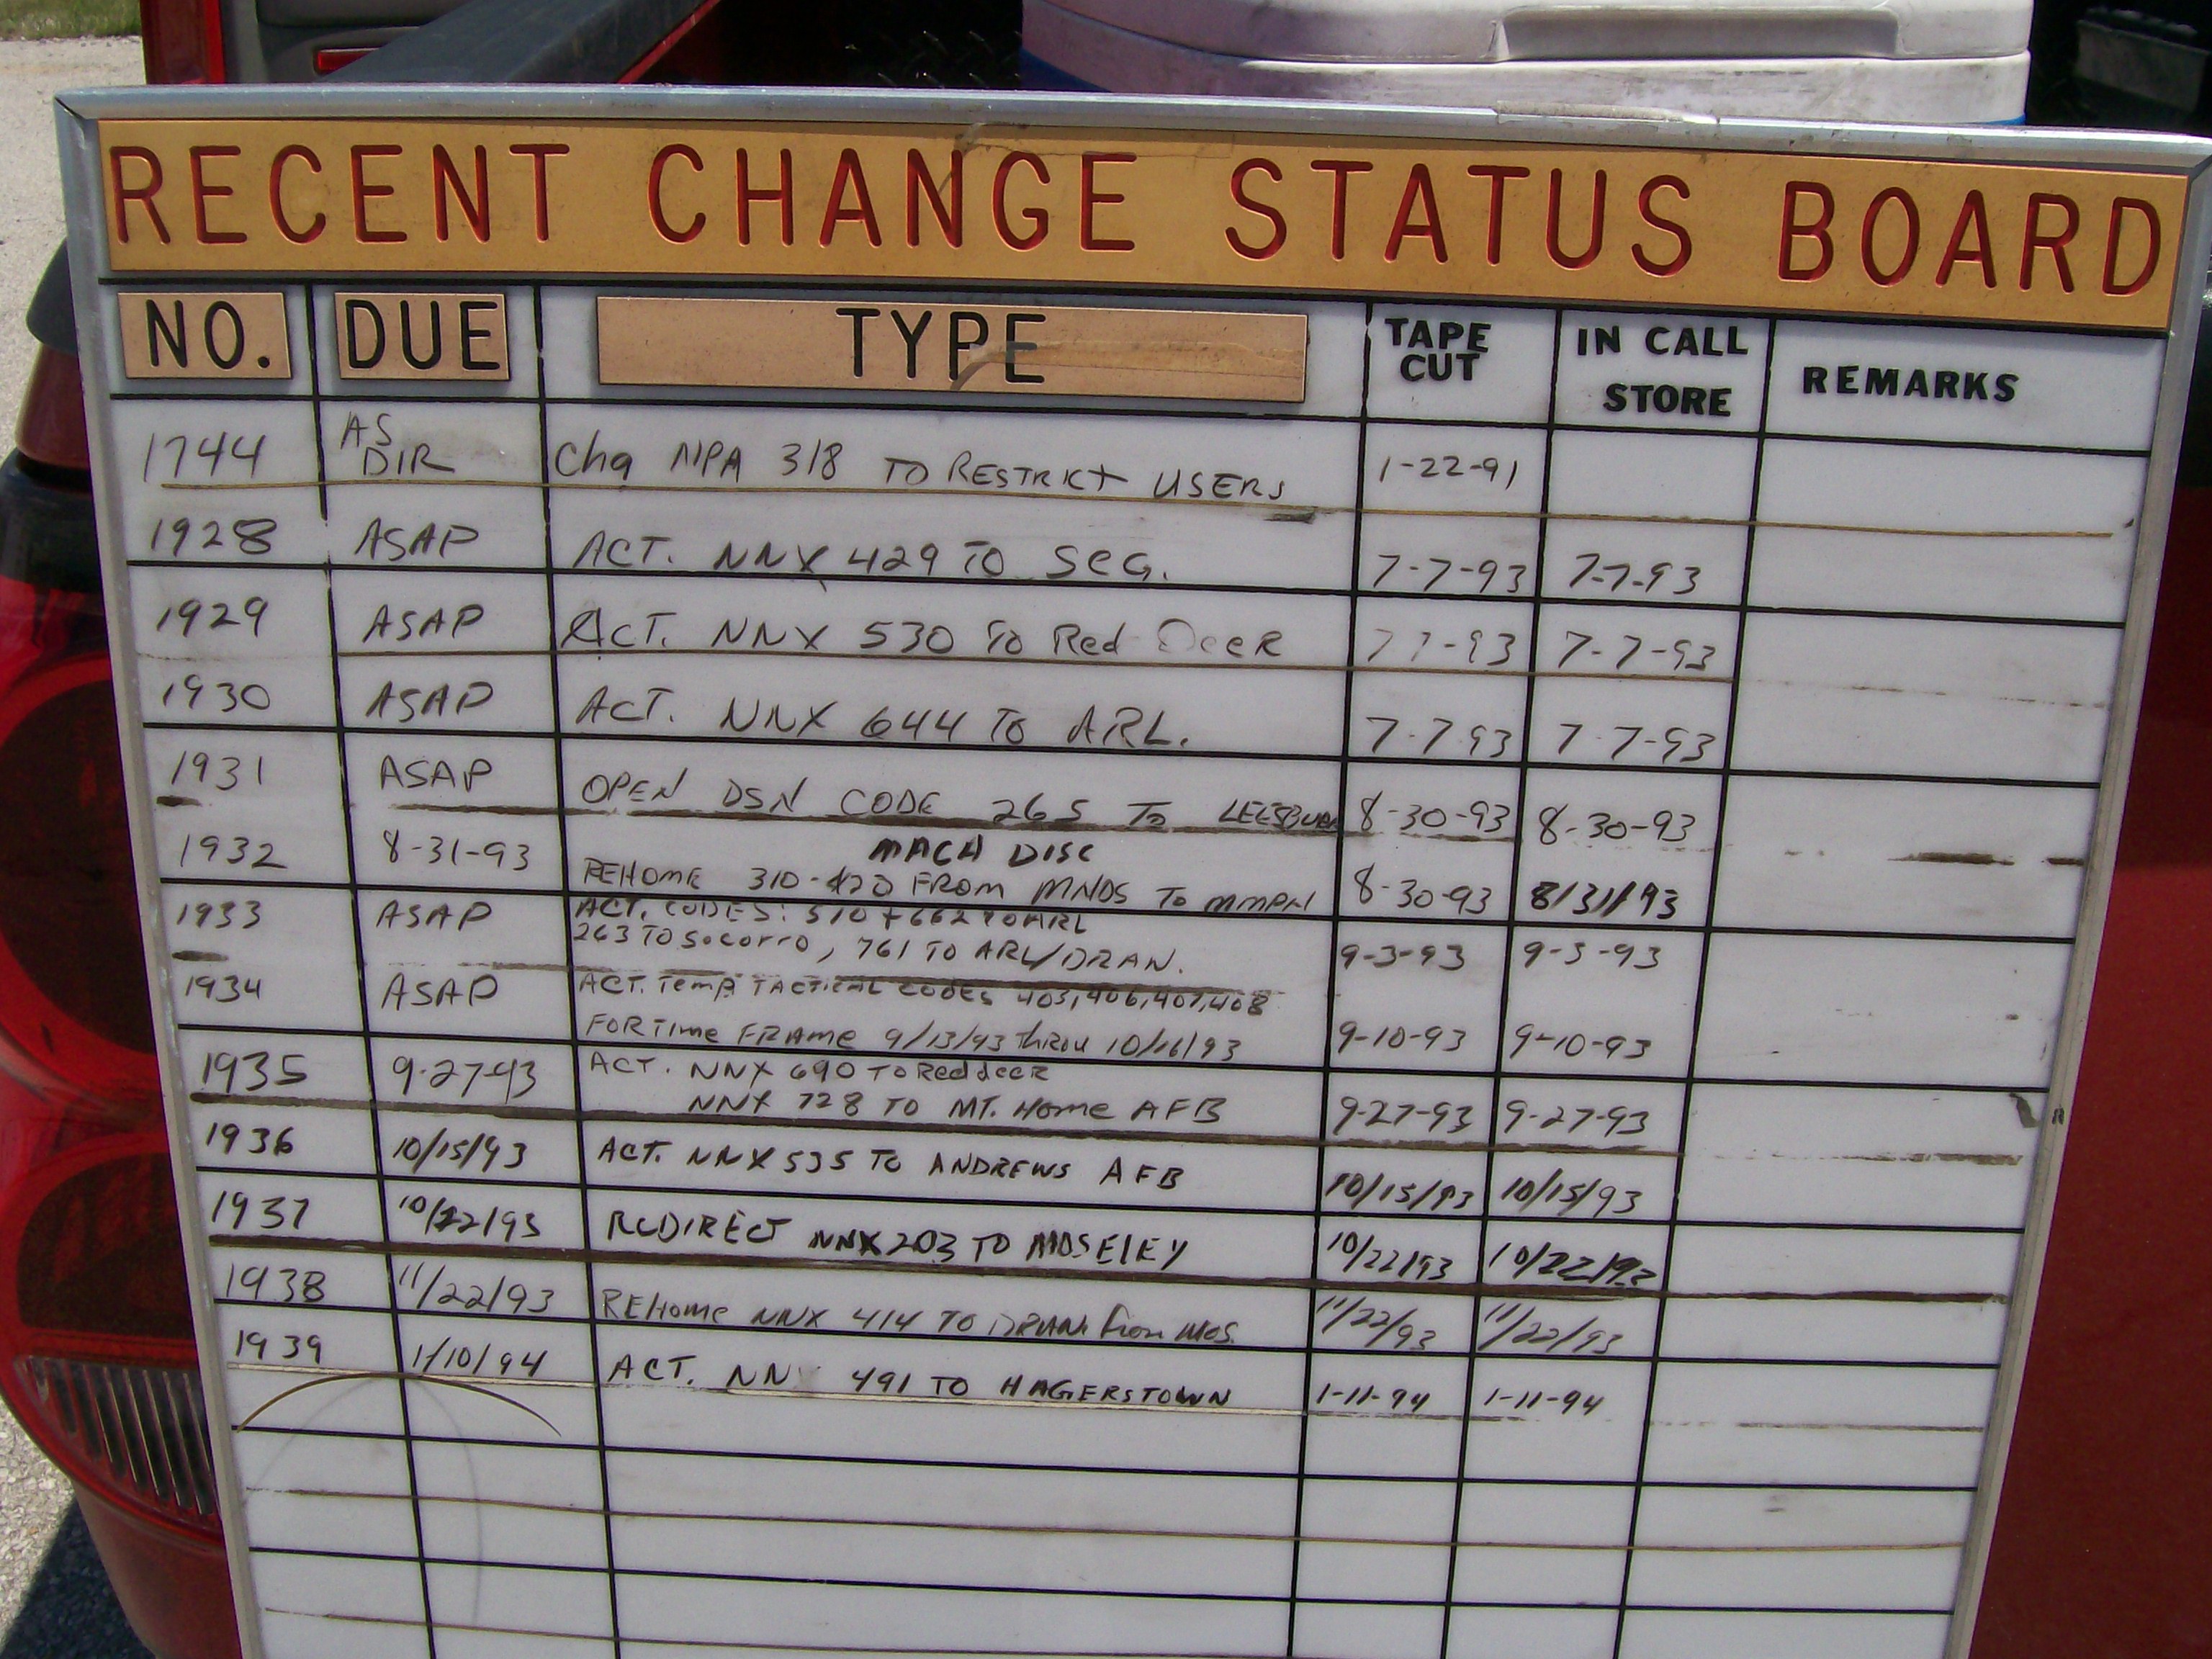 RECENT CHANGE STATUS BOARD
NO. DUE TYPE TAPE CUT IN CALL STORE REMARKS
1744 AS DIR Chg NPA 318 TO RESTRICT USERS 1-22-91
1928 ASAP ACT. NNX 429 TO SEG. 7-7-93 7-7-93
1929 ASAP ACT. NNX 530 TO Red Deer 7 7-93 7-7-93
1930 ASAP ACT. NNX 644 TO ARL. 7-7 93 7 7-93
1931 ASAP OPEN DSN CODE 265 TO LEESBURG 8-30-93 8-30-93
MACH DISC
1932 8-31-93 REHOME 310-420 FROM MNDS TO 8-30-93 8/31/93
ACT. CODES: 510 + 662 TO ARL
1933 ASAP 263 TO Socorro, 761 TO ARL/DRAN. 9-3-93 9-3-93
1934 ASAP ACT. Temp TACTICAL CODES 403,406,407,408
FOR Time FRAME 9/13/93 thROU 10/16/93 9-10-93 9-10-93
1935 9-27-93 ACT. NNX 690 TO Red deer
NNX 728 TO MT. Home AFB 9-27-93 9-27-93
1936 10/15/93 ACT. NNX 535 TO ANDREWS AFB 10/15/93 10/15/93
1937 10/22/93 REDIRECT NNX 203 TO MOSELEY 10/22/93 10/22/93
1938 11/22/93 REHome NNX 414 TO DRAN. from MOS. 11/22/93 11/22/93
1939 1/10/94 ACT. NN 491 TO HAGERSTOWN 1-11-94 1-11-94